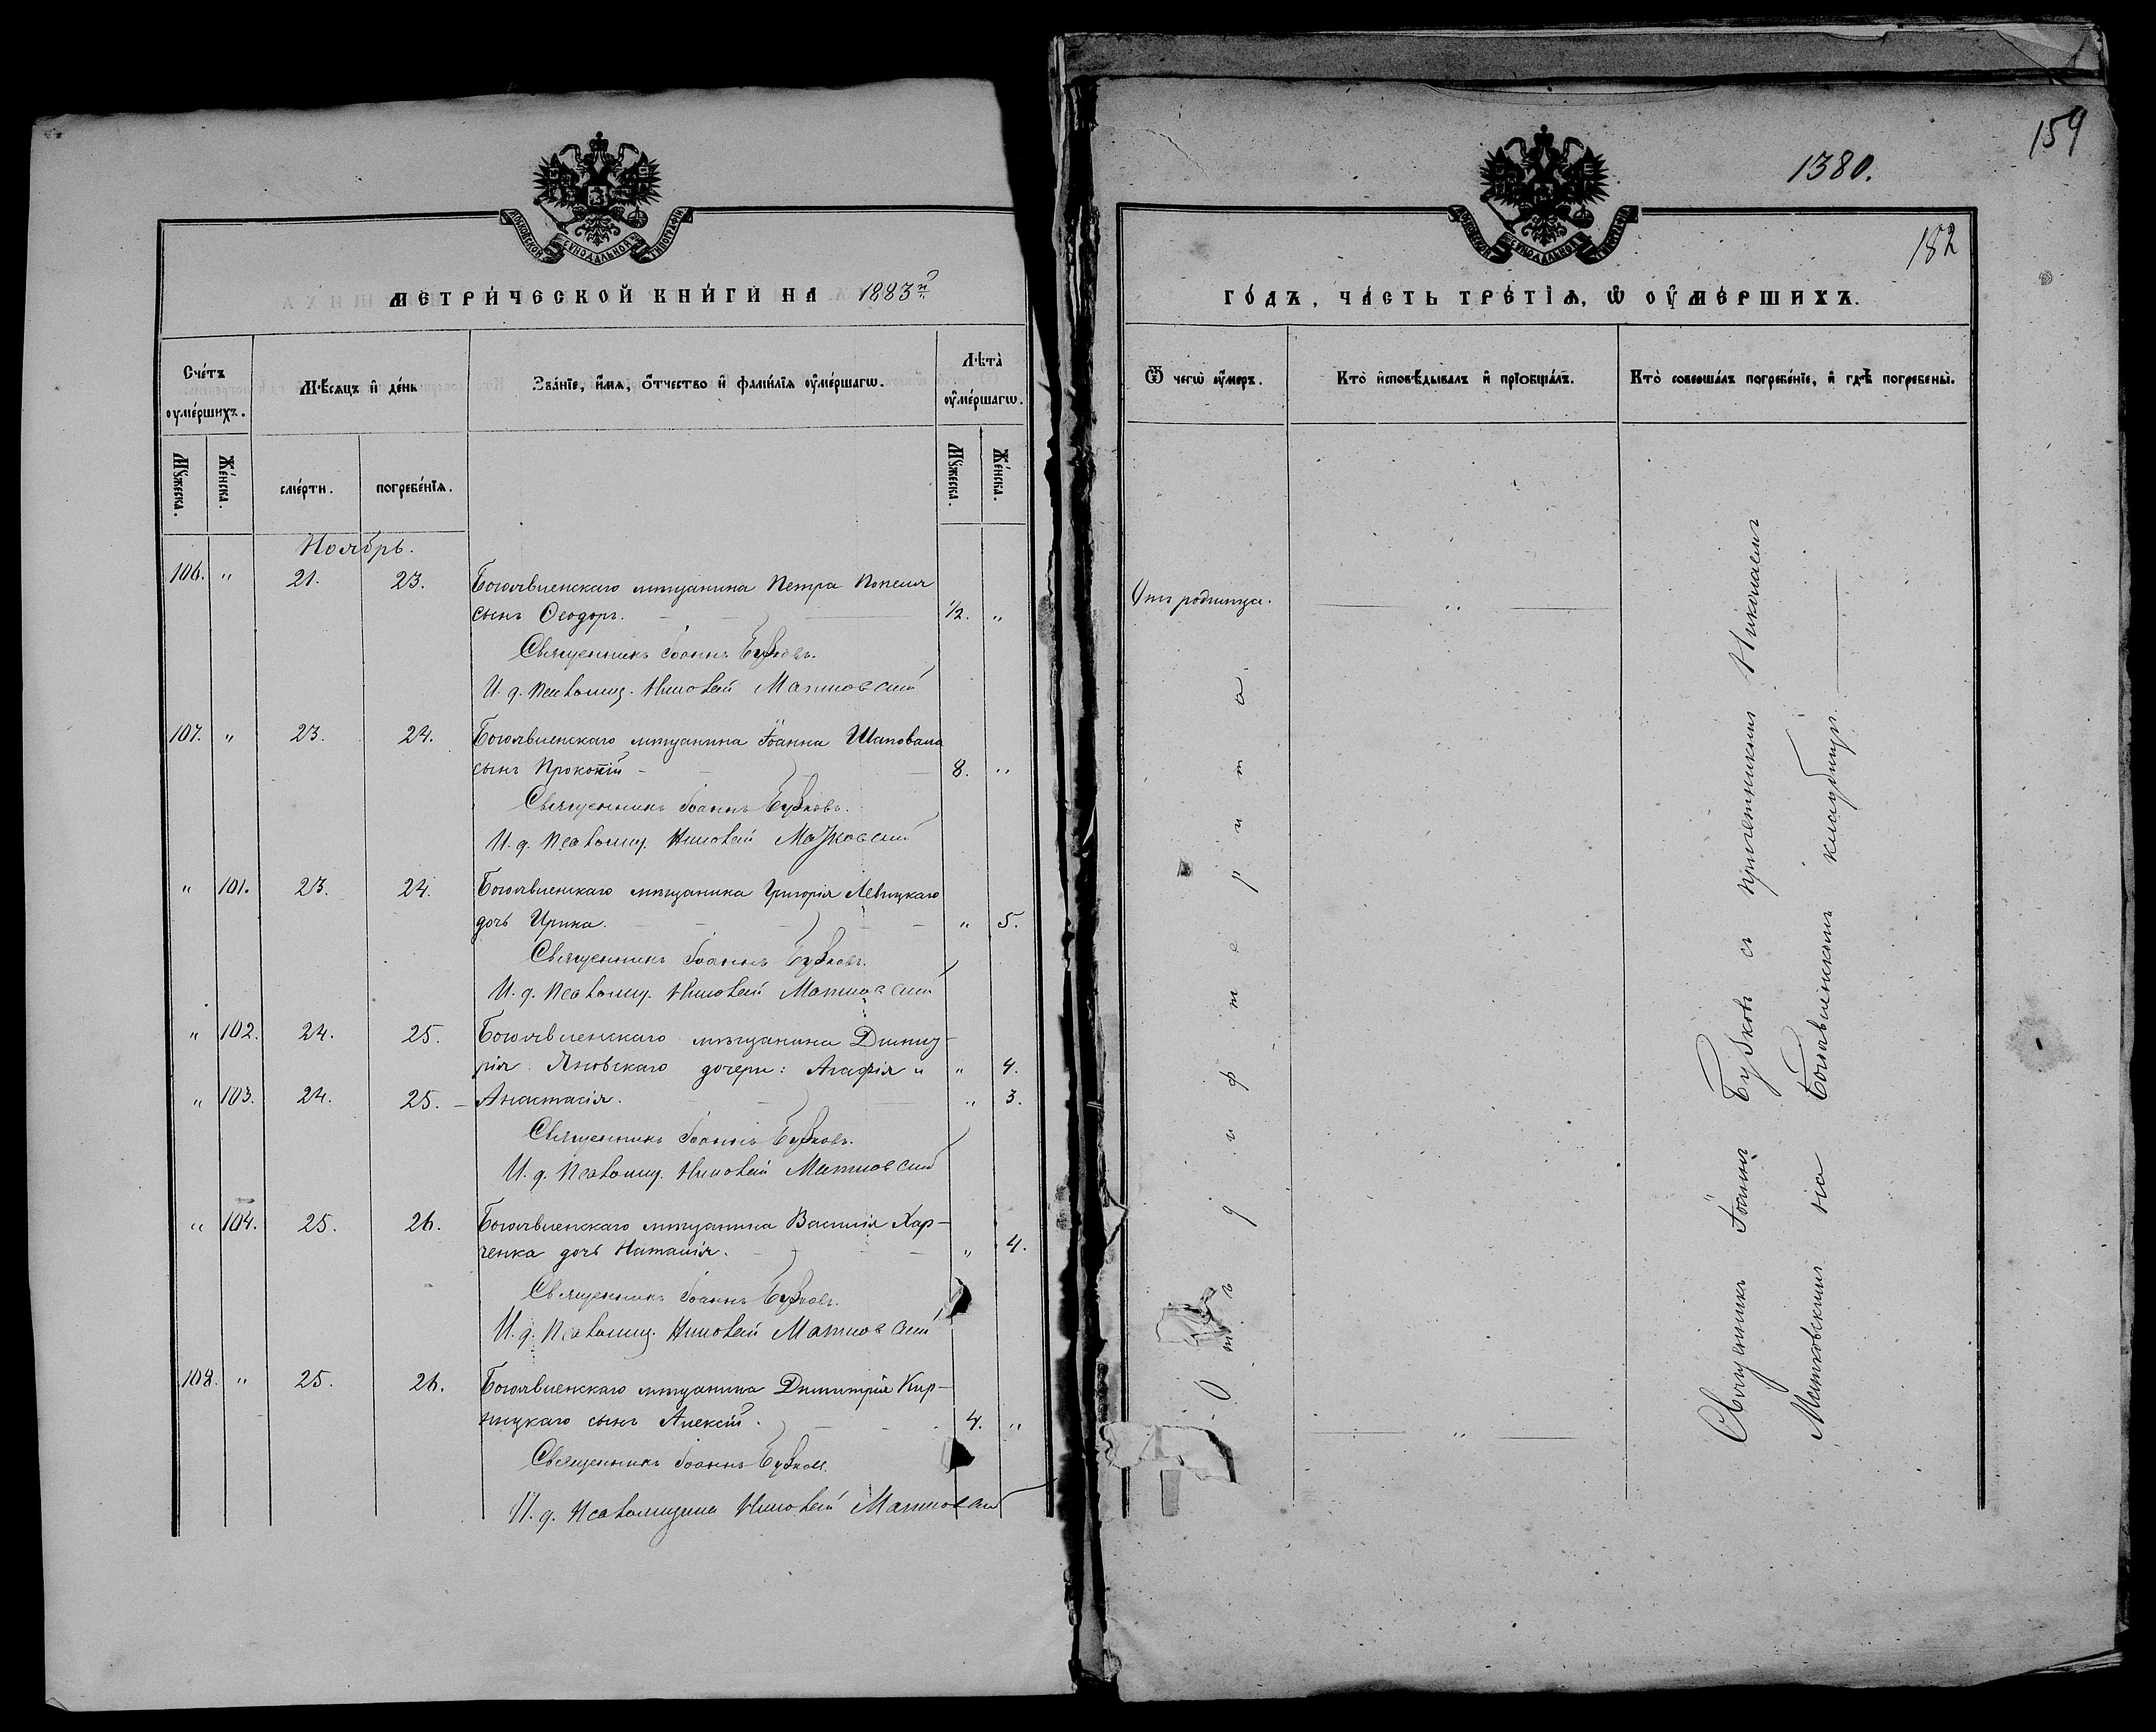 159
1380.
182
МОСКОВСКОЙ СѴНОДАЛЬНОЙ ТИПОГРАФІИ
МЕТРИ́ЧЕСКОЙ КНИ́ГИ НА 1883й
Сче́тъ ᲂумéршихъ.
Мꙋ́жеска.
Же́нска.
Мѣ́сяцъ и҆ де́нь
сме́рти.
погребе́нїѧ.
Зва́нїе, и҆́мѧ, ѻ҆́тчество и҆ фами́лїѧ ᲂу҆ме́ршагѡ.
Лѣта̀ ᲂу҆ме́ршагѡ.
Мꙋ́жеска.
Же́нска.
Ноябрь.
106. " 21. 23. Богоявленскаго мѣщанина Петра Попеля
сынъ Ѳеодоръ. 1/2. "
Священникъ Іоаннъ Бужковъ.
И. д. Псаломщ. Николай Матковскій
107. " 23. 24. Богоявленскаго мѣщанина Іоанна Шаповала
сынъ Прокопій 8. "
Священникъ Іоаннъ
И. д. Псаломщ. Николай Матковскій
" 101. 23. 24. Богоявленскаго мѣщанина Григорія Левицкаго
дочь Ирина. " 5.
Священникъ Іоаннъ
И. д. Псаломщ. Николай Матковскій
" 102. 24. 25. Богоявленскаго мѣщанина Димит-
рія Яновскаго дочери: Агафія и " 4.
" 103. 24. 25. Анастасія. " 3.
Священникъ Іоаннъ
И. д. Псаломщ. Николай Матковскій
" 104. 25. 26. Богоявленскаго мѣщанина Василія Хар-
ченка дочь Наталія. " 4.
Священникъ Іоаннъ
И. д. Псаломщ. Николай Матковскій
108. " 25. 26. Богоявленскаго мѣщанина Димитрія Кир-
ницкаго сынъ Алексій. 4. "
Священникъ Іоаннъ
И. д. Псаломщика Николай Матковскій
МОСКОВСКОЙ СѴНОДАЛЬНОЙ ТИПОГРАФІИ
ГО́ДЪ, ЧА́СТЬ ТРЕ́ТЇѦ, Ѡ҆ ОУ҆МЕ́РШИХЪ.
Ѿ чегѡ̀ ᲂу҆́меръ.
Кто̀ и҆сповѣ́дывалъ и҆ прїѡбща́лъ.
Кто̀ соверша́лъ погребе́нїе, и҆ гдѣ̀ погребены̀.
Отъ родимца. "
Отъ дифтерита.
"
Священникъ Іоаннъ съ причетникомъ Николаемъ
Матковскимъ на Богоявленскомъ кладбищѣ.